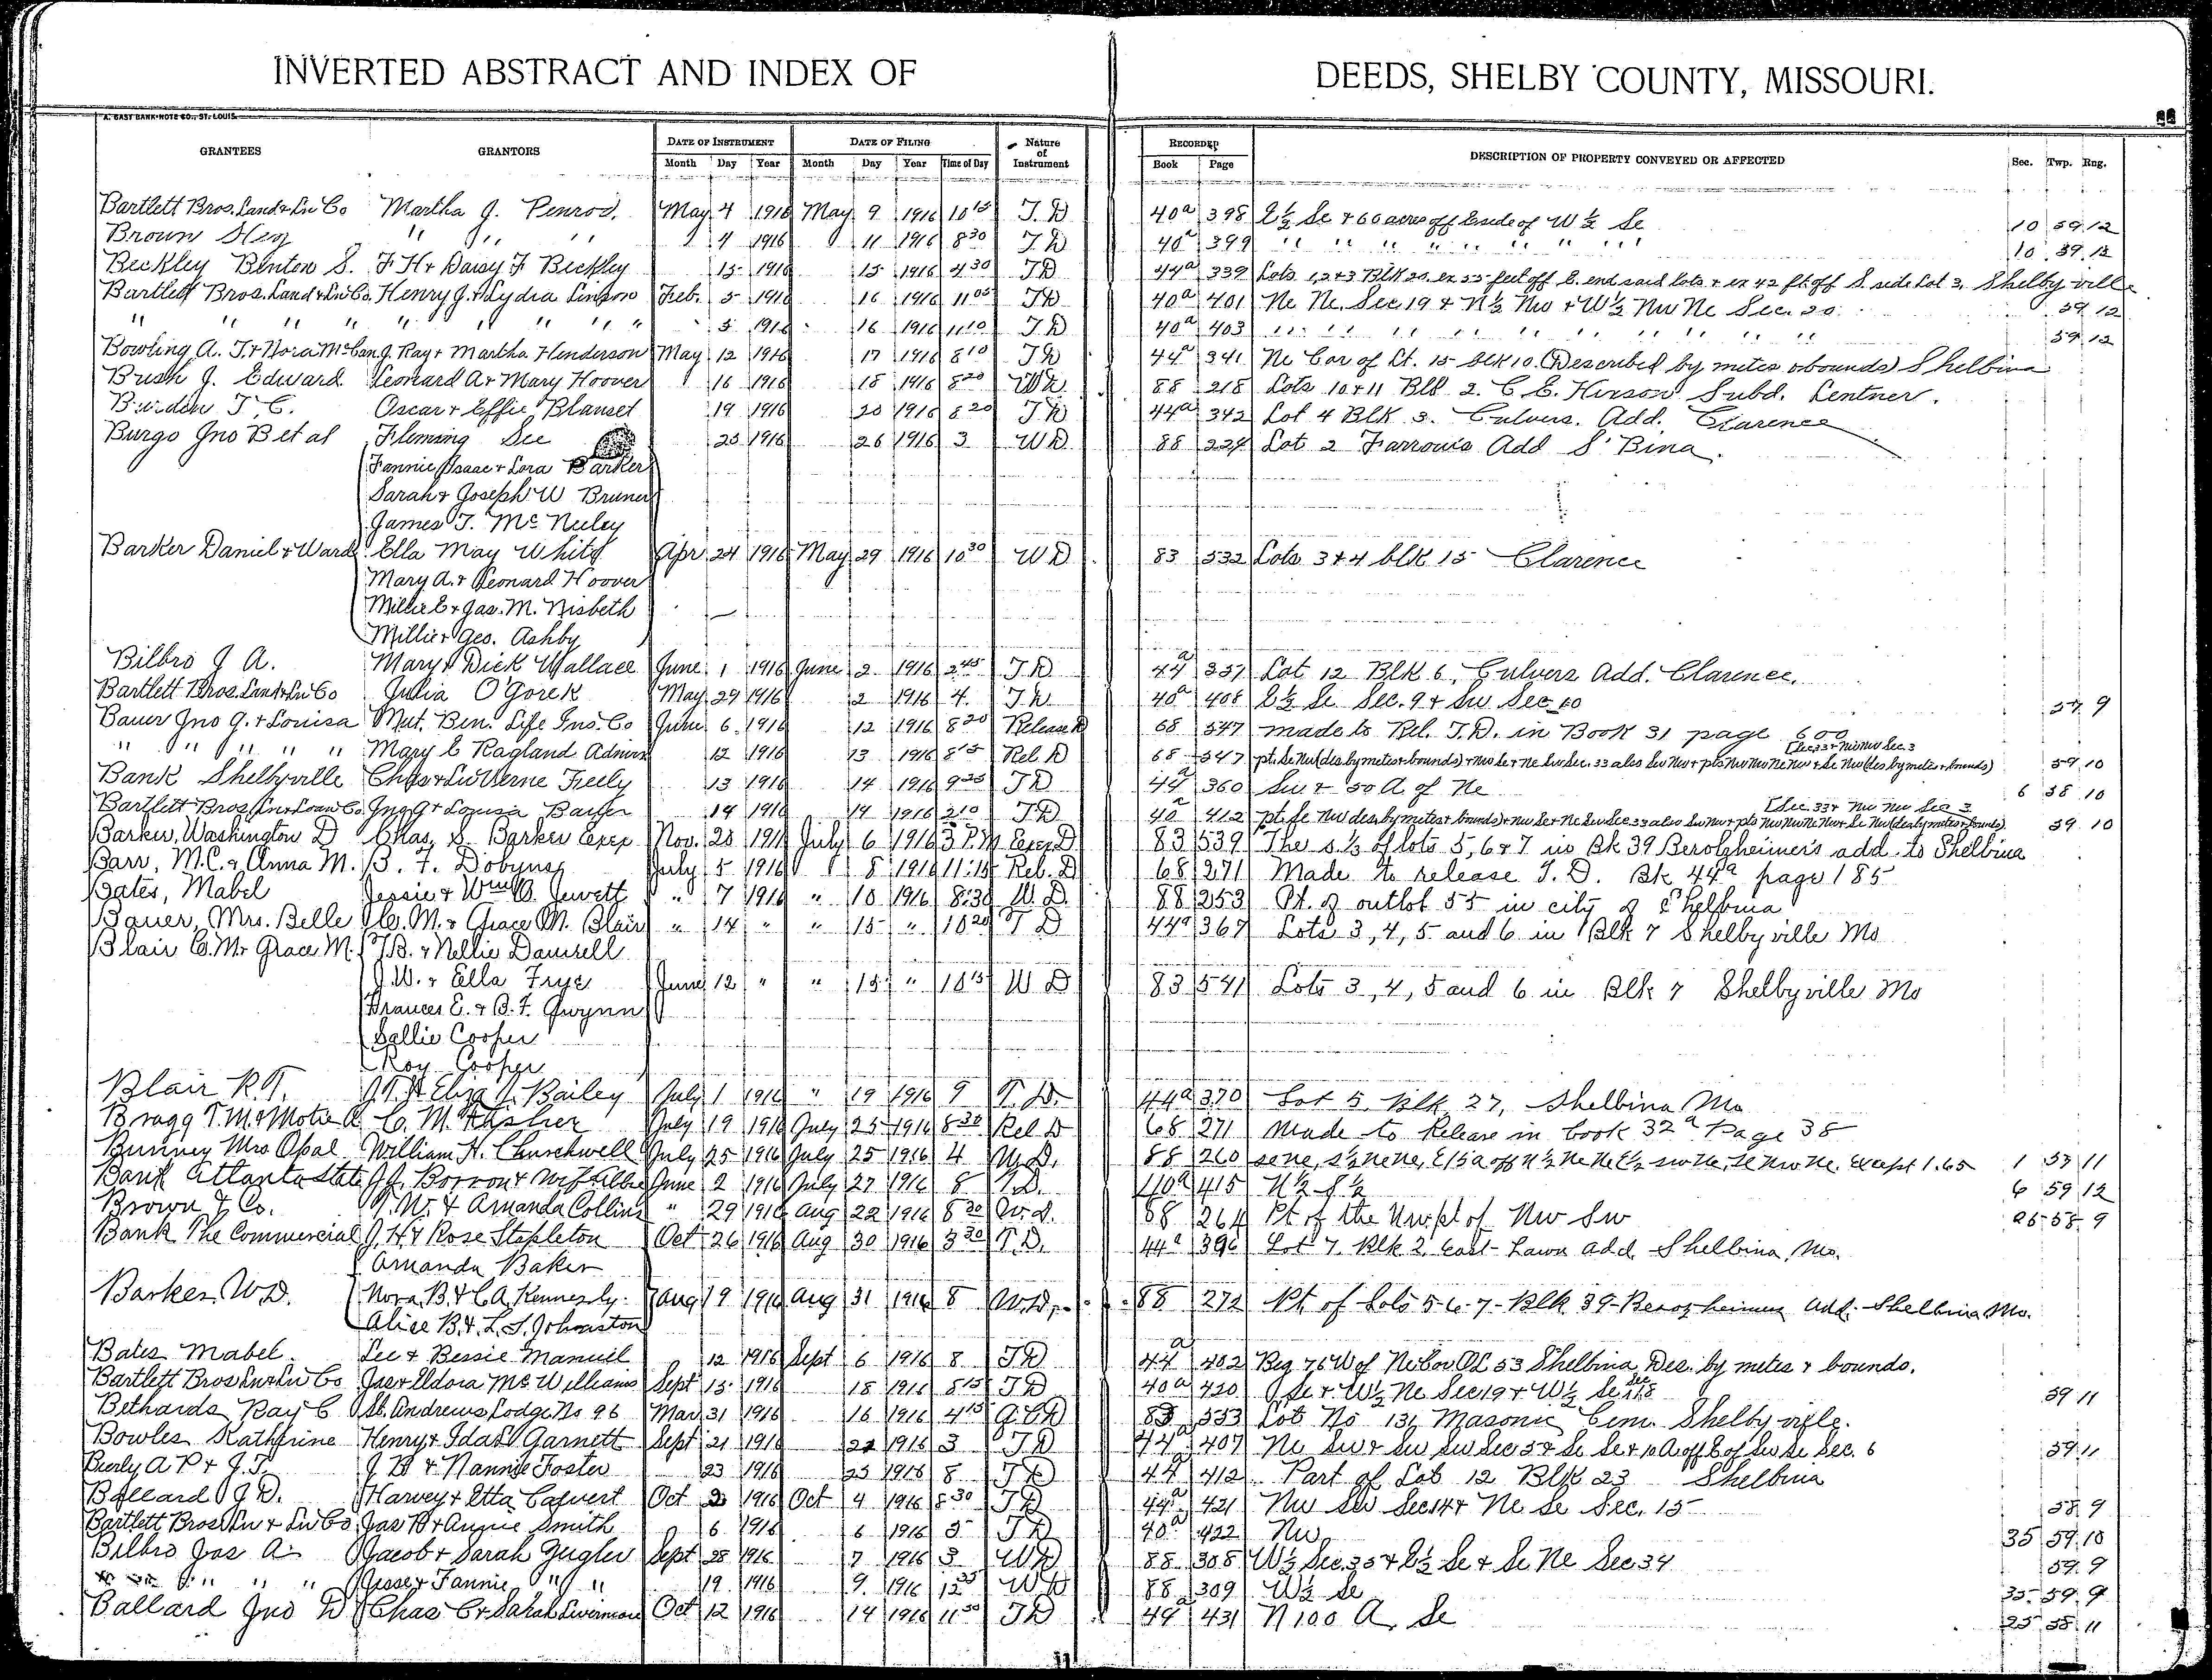 INVERTED ABSTRACT AND INDEX OF DEEDS, SHELBY COUNTY, MISSOURI.
A. GAST BANK NOTE CO., ST. LOUIS.
GRANTEES GRANTORS DATE OF INSTRUMENT DATE OF FILING Nature of Instrument RECORDED DESCRIPTION OF PROPERTY CONVEYED OR AFFECTED Sec. Twp. Rng.
Month Day Year Month Day Year Time of Day Book Page
Bartlett Bros. Land & Ln Co Martha J. Penrod. May 4 1916 May 9 1916 10 15 T. D 40a 398 E½ Se & 60 acres off E side of W ½ Se 10 59 12
Brown " " " 4 1916 11 1916 8 30 T. D 40a 399 " " " " " " " " 10 59 12
Beckley Benton S. F. H & Daisy F Beckley 15 1916 15 1916 4 30 T D 44a 339 Lots 1, 2 & 3 Blk 20. ex 55 feet off E. end said lots & ex 42 ft. off S. side Lot 3, Shelbyville
Bartlett Bros. Land & Ln Co. Henry J. & Lydia Linson Feb. 5 1916 16 1916 11 05 T D 40a 401 Ne Ne. Sec. 19 & N½ Nw & W½ Nw Ne Sec. 20 59 12
" " " " " " " " " 5 1916 16 1916 11 10 T D 40a 403 " " " " " " " " 59 12
Bowling A. T. & Nora McCan J. Ray & Martha Henderson May 12 1916 17 1916 8 10 T D 44a 341 Ne Cor of Lt. 15 blk 10. (Described by metes & bounds) Shelbina
Bush J. Edward Leonard A & Mary Hoover 16 1916 18 1916 8 20 W D 88 218 Lots 10 & 11 Blk 2. C. E. Subd. Lentner.
Burden T. C. Oscar & Effie Blanset 19 1916 20 1916 8 20 T D 44a 342 Lot 4 Blk 3. Culvers. Add. Clarence
Burgo Jno B et al Fleming See 25 1916 26 1916 3 W D 88 224 Lot 2 Farrows Add S'Bina.
Fannie, Isaac & Lora Barker
Sarah & Joseph W Bruner
James T. Mc Neeley
Barker Daniel & Ward Ella May White Apr 24 1916 May 29 1916 10 30 W D 83 532 Lots 3 & 4 blk 15 Clarence
Mary A. & Leonard Hoover
Millie E & Jas. M. Nisbeth
Millie & Geo. Ashby
Bilbro J A. Mary & Dick Wallace June 1 1916 June 2 1916 2 45 T. D 44a 351 Lot 12 Blk 6, Culvers Add. Clarence.
Bartlett Bros. Land & Ln Co Julia O'Gorek May 29 1916 2 1916 4. T. D 40a 408 E½ Se Sec. 9 & Sw Sec 10 57 9
Bauer Jno G. & Louisa Mut. Ben. Life Ins. Co June 6 1916 12 1916 8 20 Release D 68 547 made to Rel. T. D. in Book 31 page 600
" " " " " Mary E Ragland Admrx 12 1916 13 1916 8 15 Rel. D 68 547 pt. Se Nw (des by metes & bounds) & Nw Se & Ne Sw Sec. 33 also Sw Nw & pts Nw Nw Ne Nw & Se Nw (des by metes & bounds) [Sec 33 & Nw Nw Sec. 3 59 10
Bank Shelbyville Chas & LuVerne Feely 13 1916 14 1916 9 25 T D 44a 360 Sw & 50 A of Ne 6 58 10
Bartlett Bros. Ln & Loan Co. Jno G & Louisa Bauer 14 1916 14 1916 2 10 T D 40a 412 pt. Se Nw (des by metes & bounds) & Nw Se & Ne Sw Sec. 33 also Sw Nw & pts Nw Nw Ne Nw & Se Nw (des by metes & bounds) [Sec 33 & Nw Nw Sec 3 59 10
Barker, Washington D Chas. S. Barker Exex Nov. 20 1911 July 6 1916 3 P.M Exex D 83 539 The S ½ of lots 5, 6 & 7 in Bk 39 Berolzheimer's add. to Shelbina
Barr, M. C. & Anna M. B. F. Dobyns July 5 1916 8 1916 11:15 Rel. D 68 271 Made to release T. D. Bk 44a page 185
Bates, Mabel Jessie & Wm O. Jewett " 7 1916 " 10 1916 8:30 W. D. 88 253 Pt. of outlot 55 in city of Shelbina
Bauer, Mrs. Belle C. M. & Grace M. Blair " 14 " " 15 " 10 20 T D 44a 367 Lots 3, 4, 5 and 6 in Blk 7 Shelbyville Mo
Blair C. M & Grace M. T. B. & Nellie Damrell
J. W. & Ella Frye June 12 " " 15 " 10 15 W D 83 541 Lots 3, 4, 5 and 6 in Blk 7 Shelbyville Mo
Frances E. & B. F. Gwynn
Sallie Cooper
Roy Cooper
Blair R. T. J. T. & Eliza J. Bailey July 1 1916 " 19 1916 9 T. D. 44a 370 Lot 5 Blk 27, Shelbina Mo
Bragg T. M. & Motie A C. M. July 19 1916 July 25 1916 8 30 Rel D 68 271 Made to Release in book 32a Page 38
Bunney Mrs Opal William H. Churchwell July 25 1916 July 25 1916 4 W. D. 88 260 se ne, s½ ne ne, E 15 a off N ½ Ne Ne E½ sw ne, se nw ne. except 1.65 1 53 11
Bank Atlanta State J. J. Borron & June 2 1916 July 27 1916 8 T. D. 40a 415 N½ S½ 6 59 12
Brown & Co. T. W. & Amanda Collins " 29 1916 Aug 22 1916 8 30 W. D. 88 264 Pt of the Nw pt of Nw Sw 26 58 9
Bank The Commercial J. H. & Rose Stapleton Oct 26 1916 Aug 30 1916 3 30 T. D. 44a 396 Lot 7, Blk 2, East Lawn add Shelbina, Mo.
Amanda Baker
Barker, W. D. Nora B. & C. A. Kennerly Aug 19 1916 Aug 31 1916 8 W. D. 88 272 Pt of Lots 5-6-7-Blk 39-Berozheimers Add. Shelbina Mo.
Alice B. & L. S. Johnston
Bates Mabel. Lee & Bessie Manuel 12 1916 Sept 6 1916 8 T D 44a 402 Beg 76 W of Ne Cor OL 53 Shelbina, Des. by metes & bounds.
Bartlett Bros Ln & Ln Co Jas & Eldora Mc Williams Sept 15 1916 18 1916 8 15 T D 40a 420 Se & W½ Ne Sec 19 & W½ Se Sec 18 59 11
Bethards Ray C St. Andrews Lodge No 96 Mar 31 1916 16 1916 4 15 83 553 Lot No 131 Masonic Cem. Shelbyville.
Bowles Katherine Henry & Ida Garnett Sept 21 1916 22 1916 3 T D 44a 407 Ne Sw & Sw Sw Sec 5 & Se Se & 10 A. off E of Sw Se Sec. 6 59 11
Bierly A P & J. T. J B & Nannie Foster 23 1916 25 1916 8 T D 44a 412 Part of Lot 12 Blk 23 Shelbina
Ballard J. D. Harvey & Etta Calvert Oct 2 1916 Oct 4 1916 8 30 T D 44a 421 Nw Sw Sec 14 & Ne Se Sec. 15 58 9
Bartlett Bros. Ln & Ln Co Jas B & Annie Smith 6 1916 6 1916 5 T D 40a 422 Nw 35 59 10
Bilbro Jas A. Jacob & Sarah Zeigler Sept 28 1916 7 1916 3 W D 88 308 W½ Sec. 35 & E½ Se & Se Ne Sec. 34 59 9
" " " Jesse & Fannie " " 19 1916 9 1916 12 35 W D 88 309 W½ Se 35 59 9
Ballard Jno D Chas C & Sarah Oct 12 1916 14 1916 11 30 T D 44a 431 N 100 A. Se 25 58 11